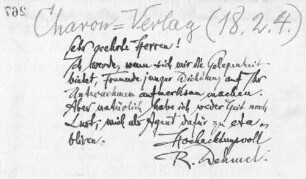 792
Charon=Verlag (18.2.4.)
Sehr geehrte Herren!
Ich werde, wenn sich mir die Gelegenheit
bietet, Freunde junger Dichtung auf Ihr
Unternehmen aufmerksam machen.
Aber natürlich habe ich weder Zeit noch
Lust, mich als Agent dafür zu eta=
blieren.
Hochachtungsvoll
R. Dehmel.